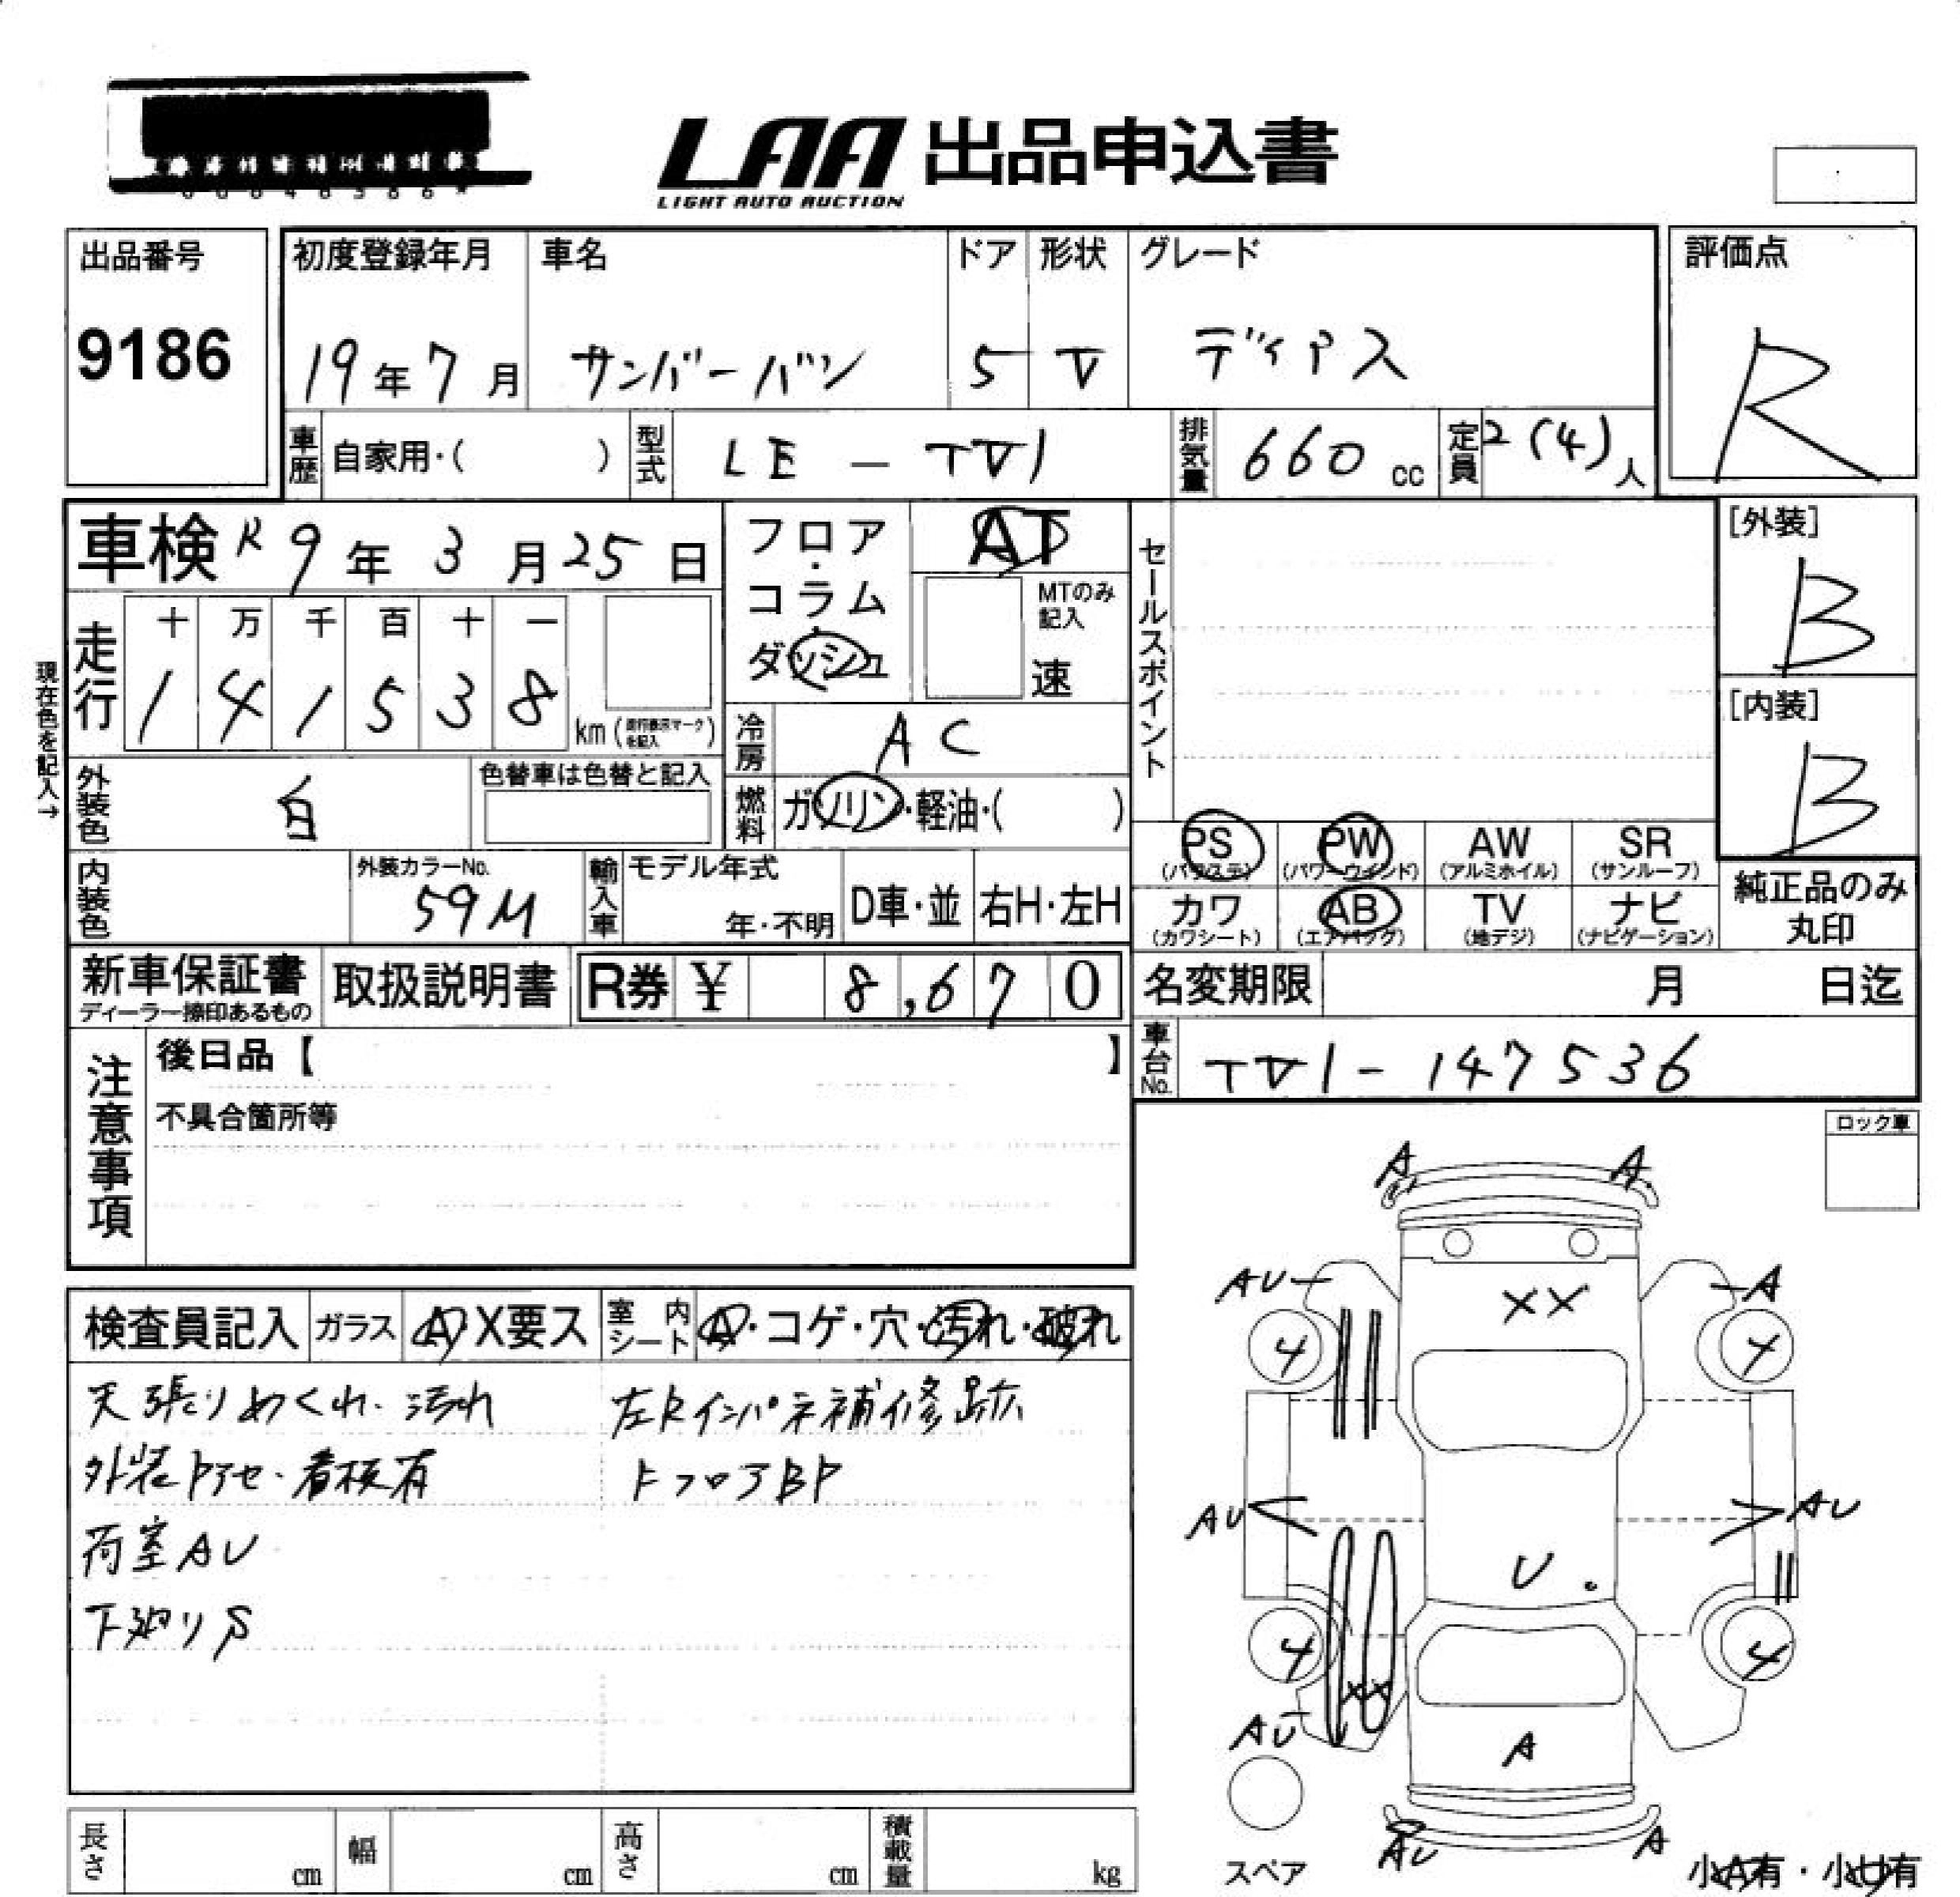 LAA 出品申込書
LIGHT AUTO AUCTION
出品番号
9186
初度登録年月
19年7月
車名
サンバーバン
ドア
5
形状
V
グレード
ディアス
評価点
R
車歴 自家用・( )
型式 LE-TV1
排気量 660cc
定員 2(4)人
車検 R9年3月25日
フロア・コラム・ダッシュ
AT
MTのみ記入
速
セールスポイント
[外装]
B
[内装]
B
現在色を記入→
走行
十万千百十一
141538 km
冷房 AC
外装色 白
色替車は色替と記入
燃料 ガソリン・軽油・( )
内装色
外装カラーNo.
59M
輸入車
モデル年式
年・不明
D車・並
右H・左H
PS PW AW SR
(パワステ) (パワーウインド) (アルミホイル) (サンルーフ)
カワ AB TV ナビ
(カワシート) (エアバッグ) (地デジ) (ナビゲーション)
純正品のみ丸印
新車保証書
ディーラー捺印あるもの
取扱説明書
R券 ¥ 8,670
名変期限 月 日迄
車台No. TV1-147536
注意事項
後日品【 】
不具合箇所等
ロック車
検査員記入 ガラス A・X要ス 室内シート A・コゲ・穴・汚れ・破れ
天張りめくれ・汚れ
外装ドアセ・看板有
荷室AU
下廻りS
左Rインパネ補修跡
RフロアBP
A A
AU A
XX
4 4
AU AU
U
4 4
XX
AU
A
AU A
スペア
小A有・小U有
長さ cm 幅 cm 高さ cm 積載量 kg